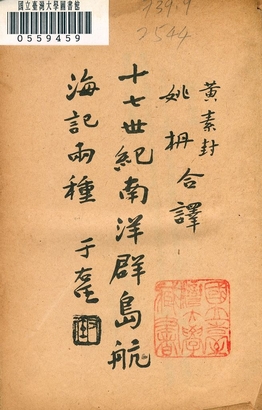 國立臺灣大學圖書館
0559459
739.9
2544
黃素封
姚枬合譯
十七世紀南洋群島航
海記兩種
于右任
國立臺
灣大學
藏書